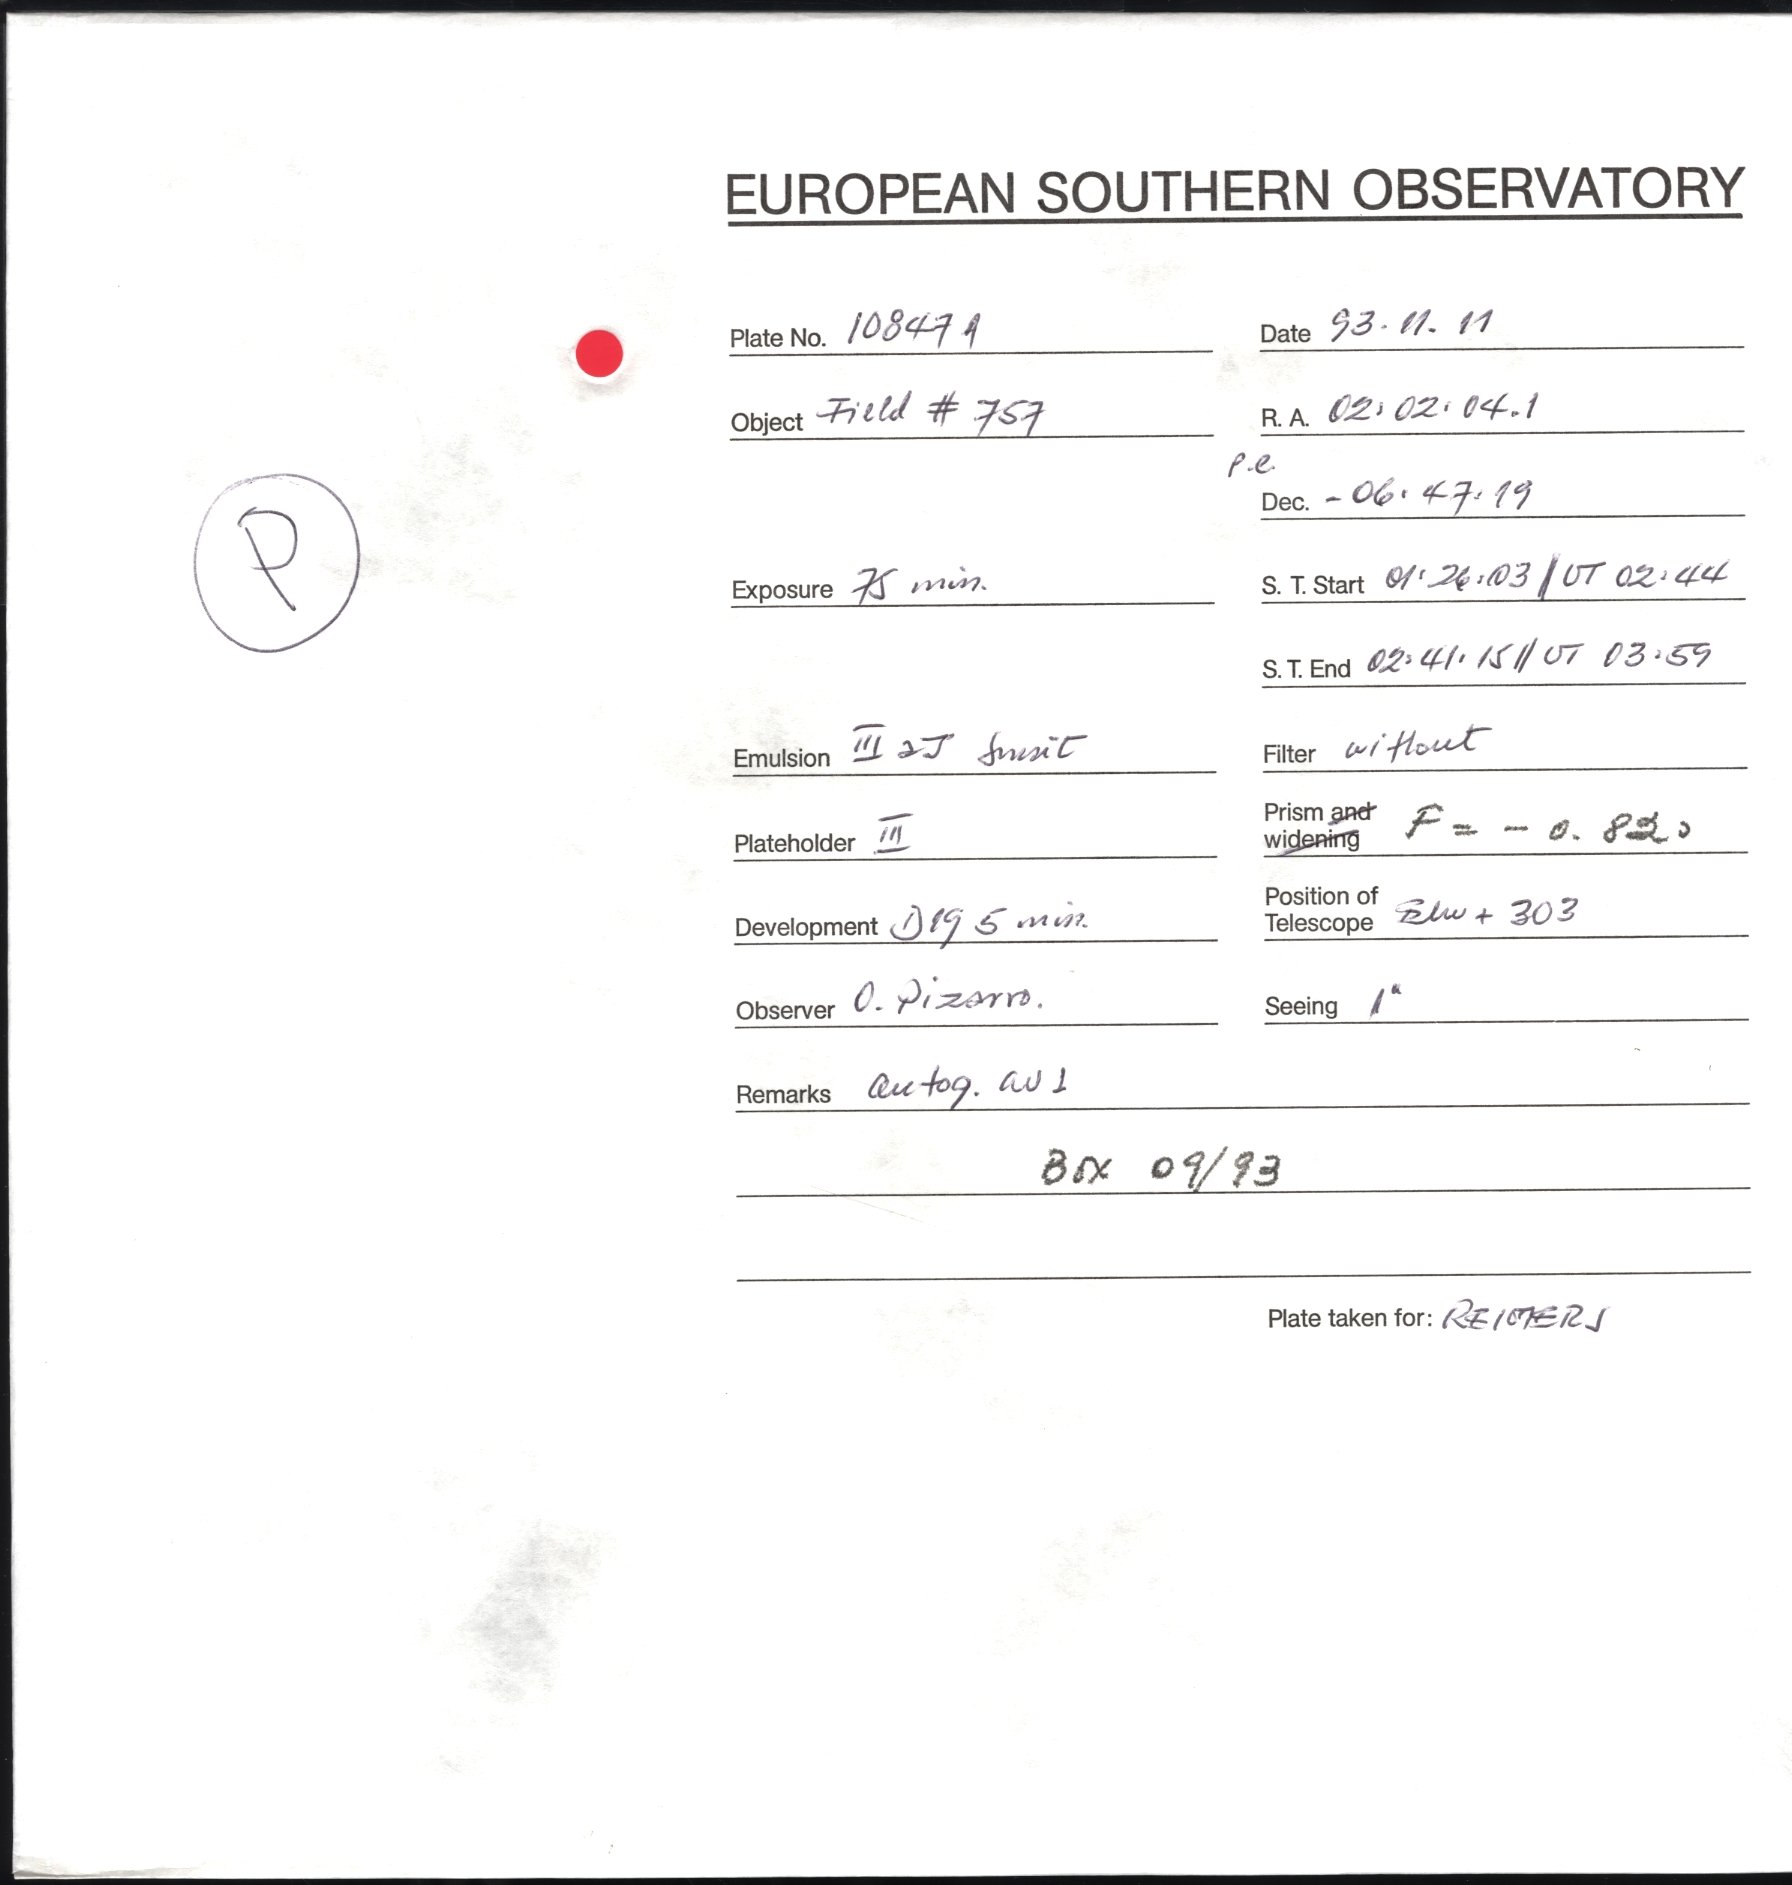 EUROPEAN SOUTHERN OBSERVATORY
Plate No. 10847A Date 93.11.11
Object Field # 757 R. A. 02:02:04.1
p.e.
Dec. -06:47:19
P
Exposure 75 min. S. T. Start 01:26:03 // UT 02:44
S. T. End 02:41:15 // UT 03:59
Emulsion III aJ Filter without
Plateholder III Prism and widening F = - 0.
Development D19 5 min. Position of Telescope + 303
Observer O. Pizarro. Seeing 1"
Remarks autog.
Box 09/93
Plate taken for: REIMERS